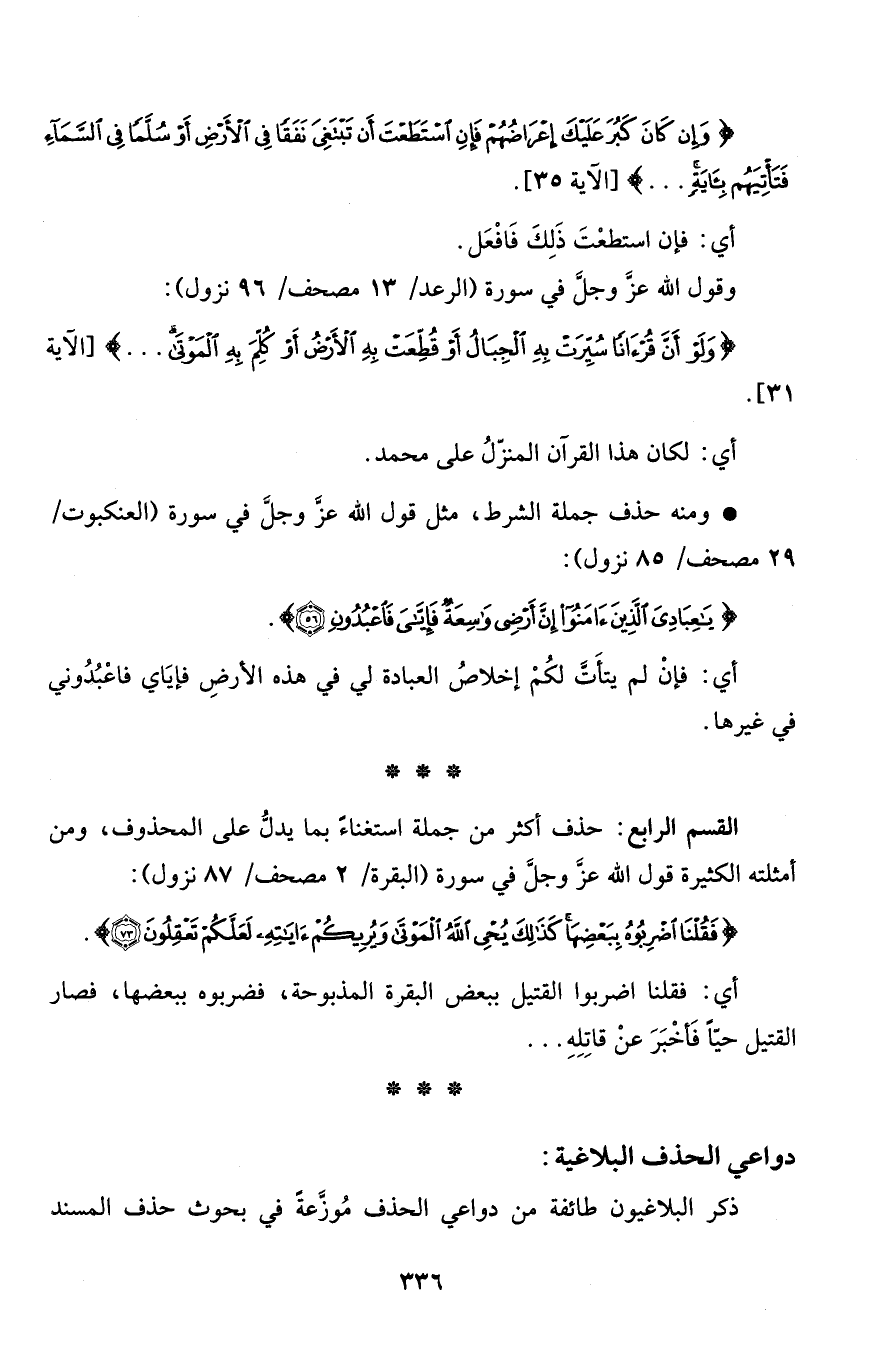 ﴿ وَإِن كَانَ كَبُرَ عَلَيْكَ إِعْرَاضُهُمْ فَإِنِ ٱسْتَطَعْتَ أَن تَبْتَغِىَ نَفَقًا فِى ٱلْأَرْضِ أَوْ سُلَّمًا فِى ٱلسَّمَآءِ
فَتَأْتِيَهُم بِـَٔايَةٍۚ . . . ﴾ [الآية ٣٥].
أي: فإن استطعْتَ ذَلِكَ فَافْعَل.
وقول الله عزَّ وجلَّ في سورة (الرعد/ ١٣ مصحف/ ٩٦ نزول):
﴿ وَلَوْ أَنَّ قُرْءَانًا سُيِّرَتْ بِهِ ٱلْجِبَالُ أَوْ قُطِّعَتْ بِهِ ٱلْأَرْضُ أَوْ كُلِّمَ بِهِ ٱلْمَوْتَىٰۗ . . . ﴾ [الآية
٣١].
أي: لكان هذا القرآن المنزّلُ على محمد.
● ومنه حذف جملة الشرط، مثل قول الله عزَّ وجلَّ في سورة (العنكبوت/
٢٩ مصحف/ ٨٥ نزول):
﴿ يَٰعِبَادِىَ ٱلَّذِينَ ءَامَنُوٓا۟ إِنَّ أَرْضِى وَٰسِعَةٌ فَإِيَّٰىَ فَٱعْبُدُونِ ٥٦ ﴾.
أي: فإنْ لم يتأَتَّ لكُمْ إخلاصُ العبادة لي في هذه الأرضِ فإيَاي فاعْبُدُوني
في غيرها.
* * *
القسم الرابع: حذف أكثر من جملة استغناءً بما يدلُّ على المحذوف، ومن
أمثلته الكثيرة قول الله عزَّ وجلَّ في سورة (البقرة/ ٢ مصحف/ ٨٧ نزول):
﴿ فَقُلْنَا ٱضْرِبُوهُ بِبَعْضِهَاۚ كَذَٰلِكَ يُحْىِ ٱللَّهُ ٱلْمَوْتَىٰ وَيُرِيكُمْ ءَايَٰتِهِۦ لَعَلَّكُمْ تَعْقِلُونَ ٧٣ ﴾.
أي: فقلنا اضربوا القتيل ببعض البقرة المذبوحة، فضربوه ببعضها، فصار
القتيل حيّاً فَأخْبَرَ عنْ قاتِلِهِ. . .
* * *
دواعي الحذف البلاغية:
ذكر البلاغيون طائفة من دواعي الحذف مُوزَّعةً في بحوث حذف المسند
٣٣٦